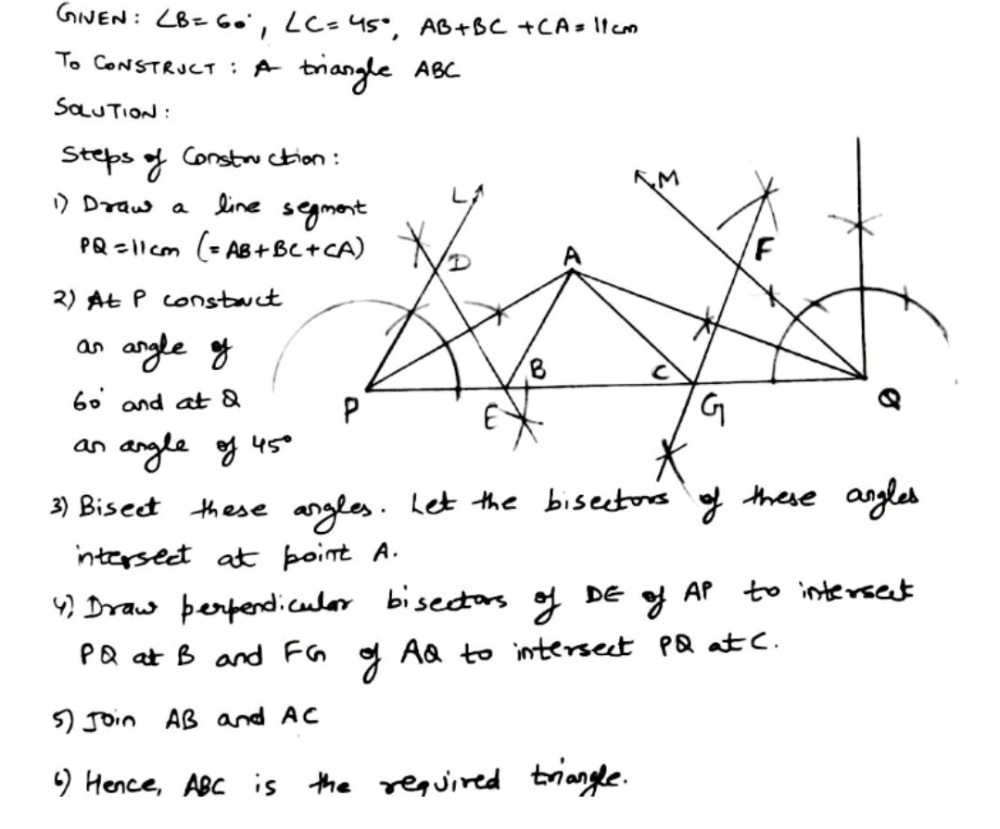 GIVEN: ∠B= 60°, ∠C= 45°, AB+BC +CA= 11cm
TO CONSTRUCT : A triangle ABC
SOLUTION:
Steps of Construction:
1) Draw a line segment
PQ =11cm (= AB+BC+CA)
2) At P construct
an angle of
60° and at Q
an angle of 45°
L
D
A
M
F
P
E
B
C
G
Q
3) Bisect these angles. Let the bisectors of these angles
intersect at point A.
4) Draw perpendicular bisectors of DE of AP to intersect
PQ at B and FG of AQ to intersect PQ at C.
5) Join AB and AC
6) Hence, ABC is the required triangle.